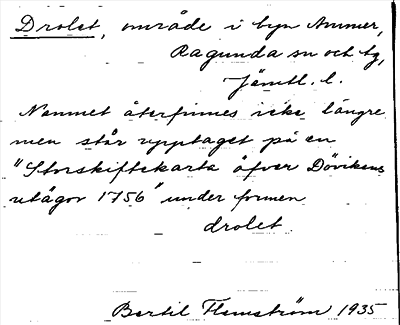 Drolet, område i byn Ammer,
Ragunda sn och tg,
Jämtl. l.
Namnet återfinnes icke längre
men står upptaget på en
"Storskifteskarta öfver Dövikens
utägor 1756" under formen
drolet.
Bertil Flemström 1935